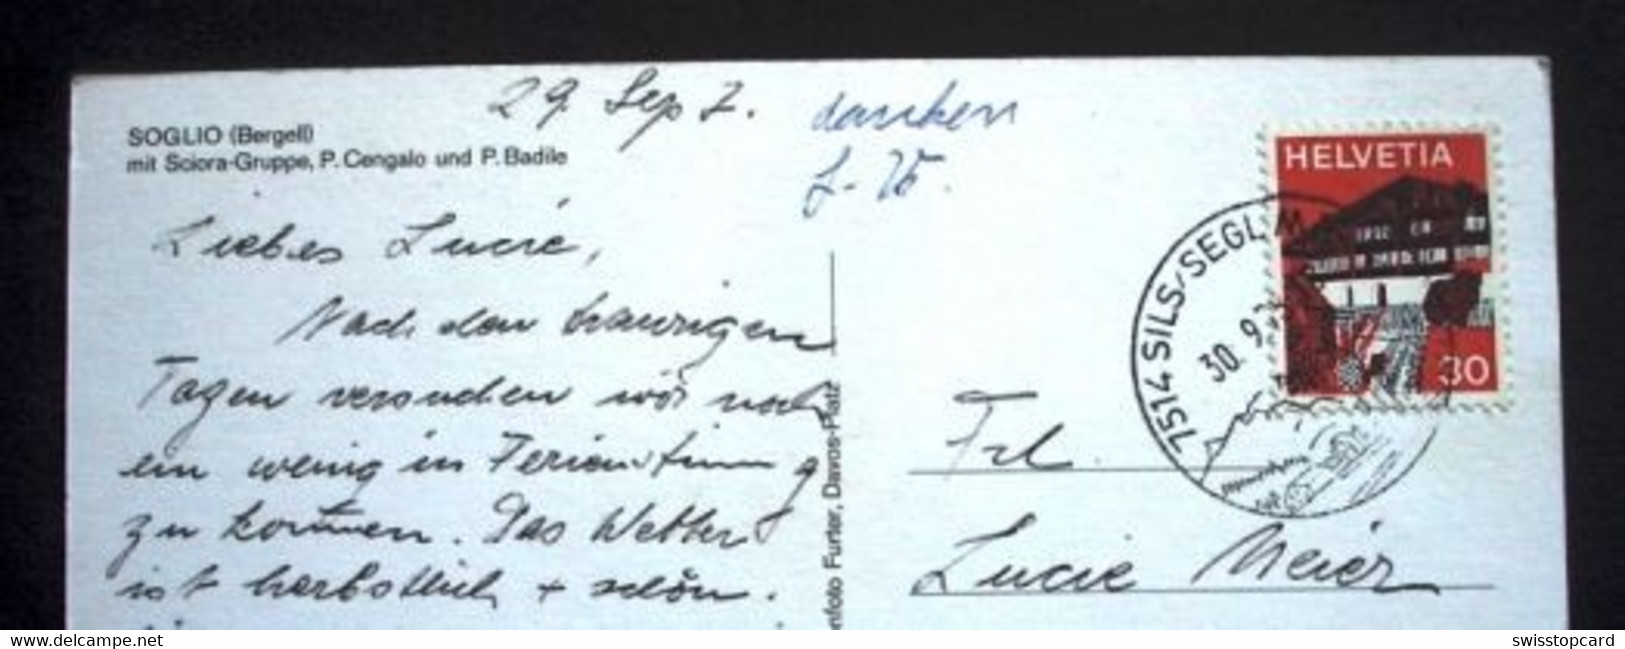 29. Sep 7.
danken
SOGLIO (Bergell)
mit Sciora-Gruppe, P. Cengalo und P. Badile
Liebes Lucie,
Nach den traurigen
Tagen versuchen wir noch
ein wenig in Ferienstimmung
zu kommen. Das Wetter
ist herbstlich + schön.
nfoto Furter, Davos-Platz
HELVETIA
30
7514 SILS/SEGL
30. 9.
Frl.
Lucie Meier
https://www.delcampe.net
swisstopcard